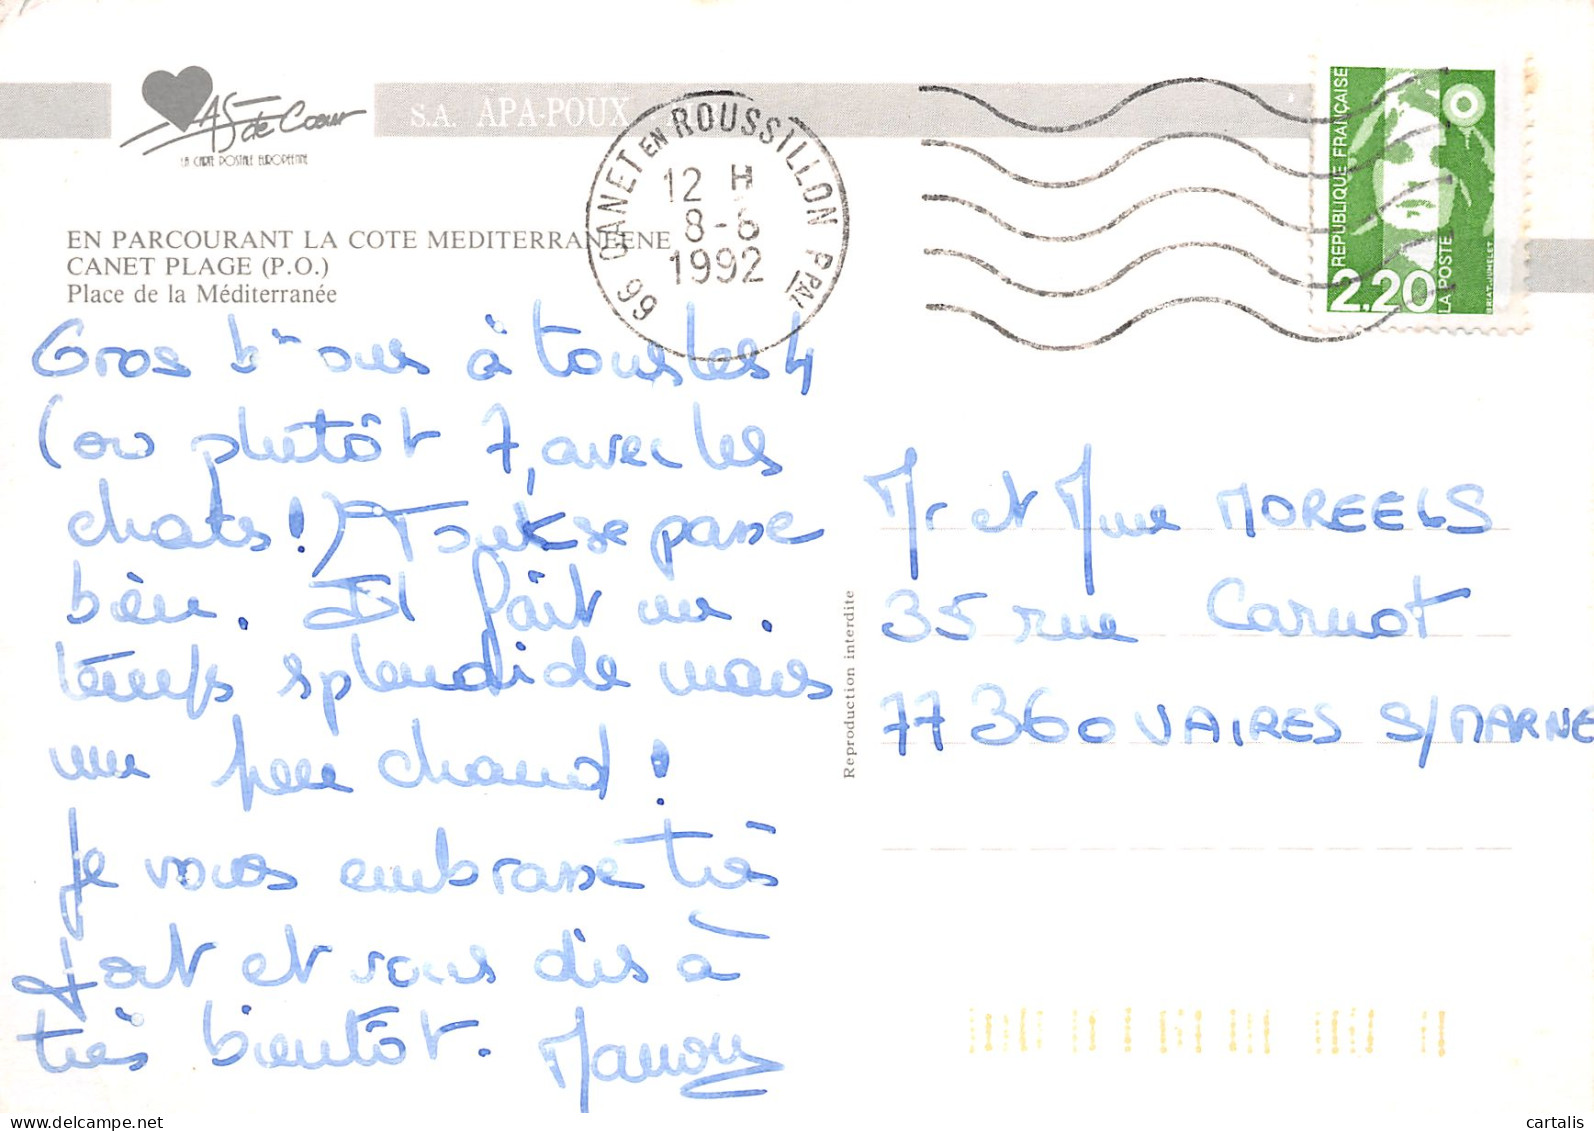 AS de Cœur
LA CARTE POSTALE EUROPEENNE
S.A. APA-POUX
66 CANET EN ROUSSILLON PPAL
12 H
8-6
1992
REPUBLIQUE FRANÇAISE
2,20
LA POSTE
BRIAT-JUMELET
EN PARCOURANT LA COTE MEDITERRANEENE
CANET PLAGE (P.O.)
Place de la Méditerranée
Gros bisous à tous les 4
(ou plutôt 7, avec les
chats!) Tout se passe
bien. Il fait un
temps splendide mais
un peu chaud!
Je vous embrasse très
fort et vous dis à
très bientôt. Manou
Reproduction interdite
Mr et Mme MOREELS
35 rue Carnot
77360 VAIRES S/MARNE
cartalis